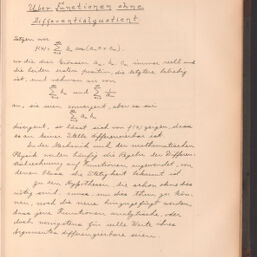 Über Funktionen ohne
Differentialquotient
Setzen wir
f(x) = ∑ aₙ cos(
wo die drei Grössen aₙ, bₙ, cₙ immer reell und
die beiden ersten positiv, die letztere beliebig
ist, und nehmen an
∑ aₙ und ∑
an, sie seien convergent, aber es sei
∑ aₙ bₙ
divergent, so lässt sich von f(x) zeigen, dass
es an keiner Stelle differenzierbar ist.
In der Mechanik und der mathematischen
Physik werden häufig die Regeln der Differen-
tialrechnung auf Funktionen angewendet, von
denen bloss die Stetigkeit bekannt ist.
Zu den Hypothesen, die schon ohne das
nötig sind, muss, um dies thun zu kön-
nen, noch die neue hinzugefügt werden,
dass jene Funktionen analytische, oder
doch wenigstens für viele Werte ihres
Argumentes differenzierbare seien.